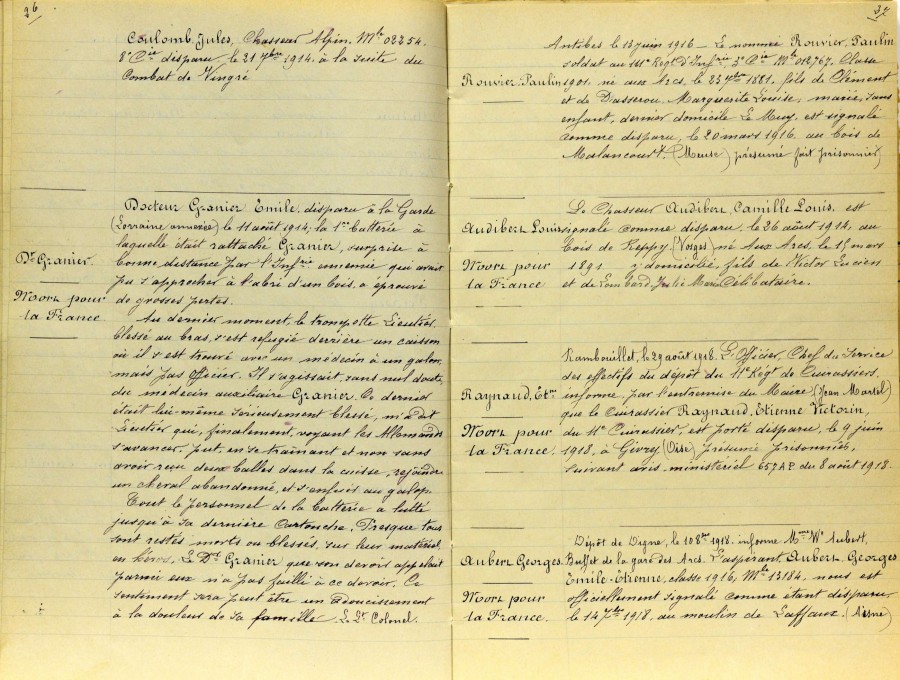 26
Coulomb, Jules, Chasseur Alpin. Mle 02254.
8e Cie disparu le 21 7bre 1914. à la suite du
Combat de Vingré
Docteur Granier Emile, disparu à la Garde
(Lorraine annexée) le 11 août 1914; la 1re batterie à
laquelle était rattaché Granier, surprise à
bonne distance par l'Infrie ennemie qui avait
Dr Granier.
pu s'approcher à l'abri d'un bois, a éprouvé
de grosses pertes.
Mort pour
la France.
Au dernier moment, le trompette Lieutier,
blessé au bras, s'est refugié derrière un caisson
où il s'est trouvé avec un médecin à un galon,
mais pas officier. Il s'agissait, sans nul doute,
du médecin auxiliaire Granier. Ce dernier
était lui-même sérieusement blessé, m'a dit
Lieutier qui, finalement, voyant les Allemands
s'avancer, put, en se trainant et non sans
avoir reçu deux balles dans la cuisse, rejoindre
un cheval abandonné, et s'enfuir au galop.
Tout le personnel de la batterie a lutté
jusqu'à sa dernière Cartouche. Presque tous
sont restés morts ou blessés, sur leur matériel,
en héros. Le Dr Granier que son devoir appelait
parmi eux n'a pas failli à ce devoir. Ce
sentiment sera peut être un adoucissement
à la douleur de sa famille. Le Lt Colonel.
Antibes le 13 juin 1916 — Le nommé Rouvier, Paulin
soldat au 111e Régt d'Infrie, 3e Cie Mle 012767. Classe
Rouvier, Paulin
1901. né aux Arcs, le 23 7bre 1881. fils de Clément
et de Dasserou Marguerite Louise, marié, sans
enfant, dernier domicile Le Muy, est signalé
comme disparu, le 20 mars 1916. au bois de
Malancourt. (Meuse) présumé fait prisonnier)
Le Chasseur Audibert, Camille Louis, est
Audibert Louis
signalé comme disparu, le 26 août 1914, au
bois de Reppy (Vosges) né Aux Arcs, le 15 mars
Mort pour
la France
1891. y domicilié, fils de Victor Lucien
et de Lombard Julie Marie Célibataire.
Rambouillet, le 29 août 1918. L'Officier, Chef du Service
des effectifs du dépôt du 11e Régt de Cuirassiers.
Raynaud, Etne
informe par l'entremise du Maire (Jean Martel)
que le Cuirassier Raynaud, Etienne Victorin,
Mort pour
la France.
du 11e Cuirassier, est porté disparu, le 9 juin
1918, à Givry (Oise) présumé prisonnier,
suivant avis ministériel 657 A.P. du 8 août 1918.
Dépôt de Digne, le 10 8bre 1918. informe Mme Ve Aubert,
Aubert Georges.
Buffet de la gare des Arcs. l'aspirant, Aubert, Georges
Emile-Etienne, classe 1916, Mle 13184, nous est
Mort pour
la France.
officiellement signalé comme étant disparu
le 14 7bre 1918, au moulin de Laffaux. (Aisne)